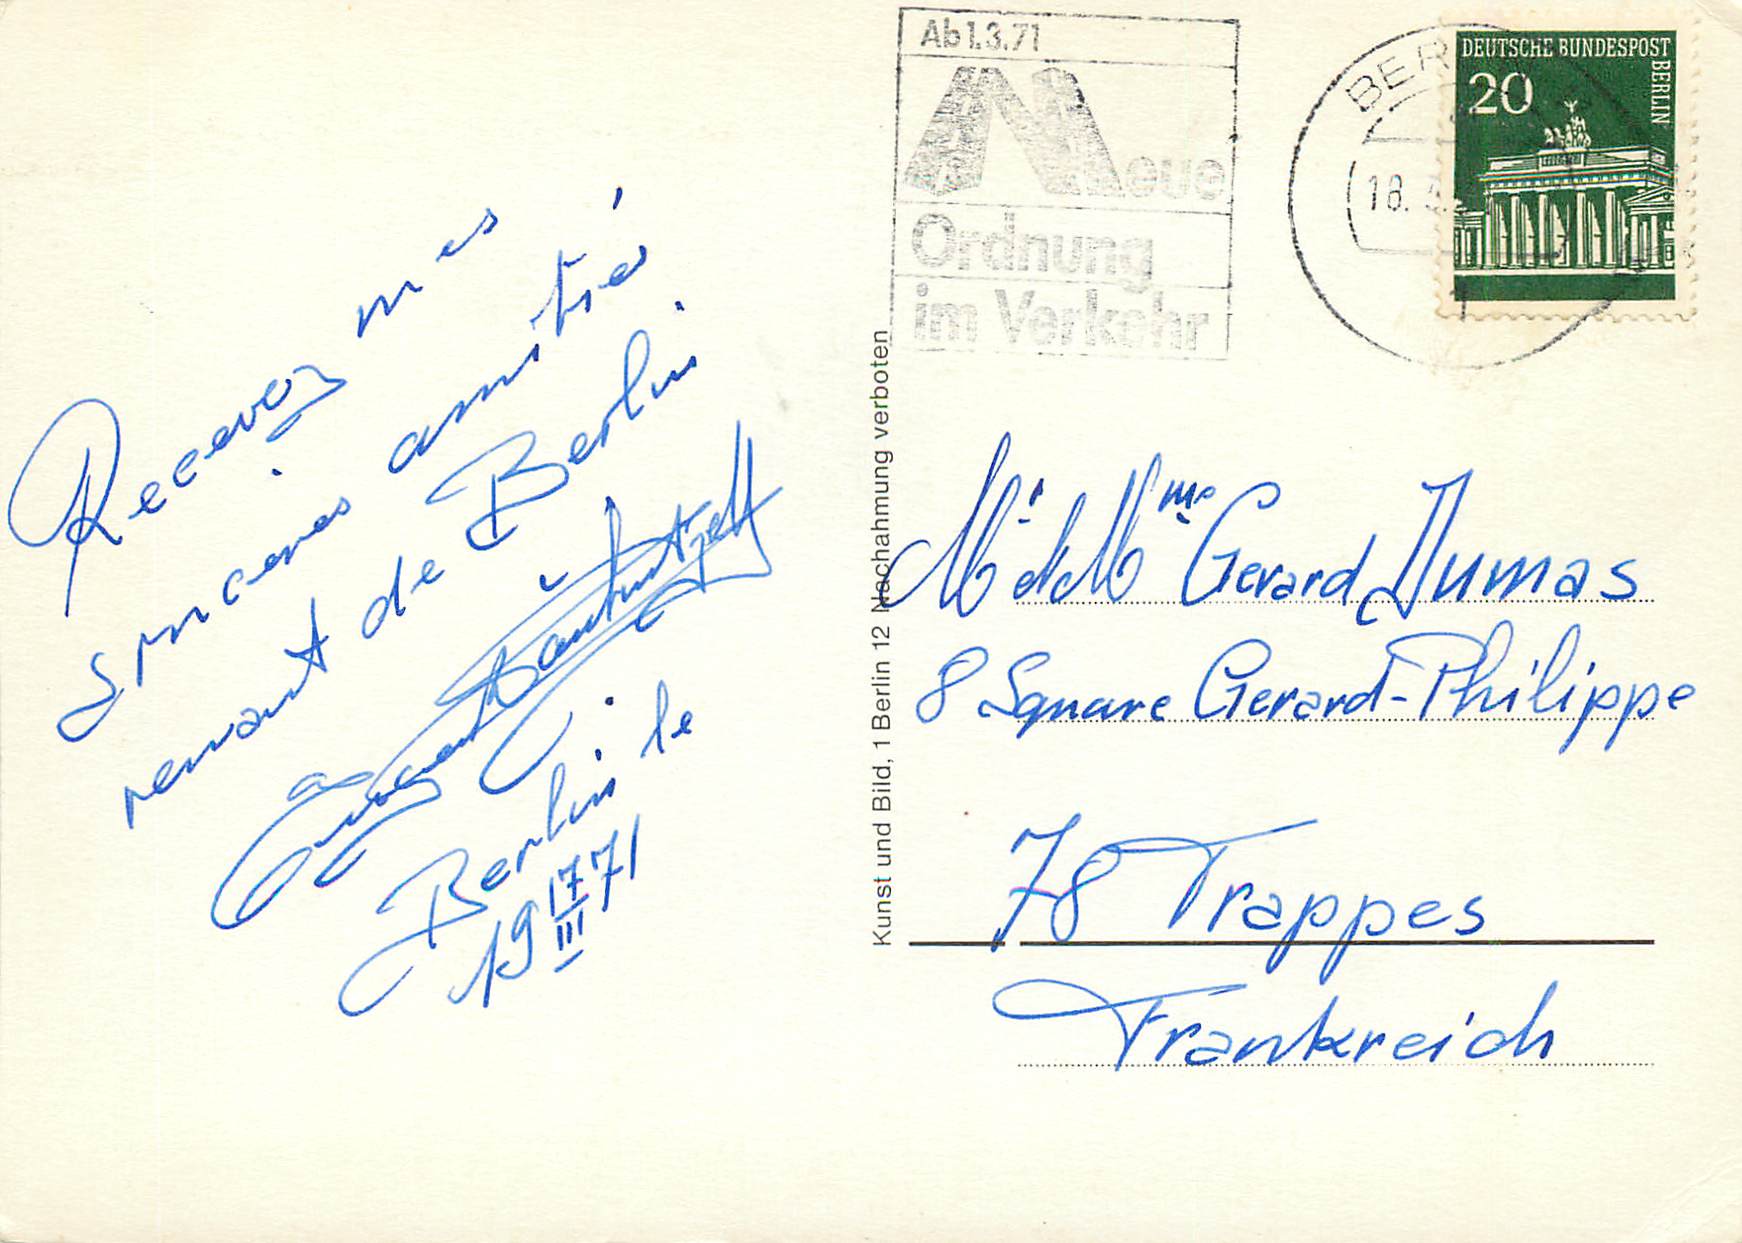 Recevez mes
sinceres amitié
venant de Berlin
Berlin le
19 17/III 71
Ab 1.3.71
Neue
Ordnung
im Verkehr
BER
18.
1
DEUTSCHE BUNDESPOST
BERLIN
20
Kunst und Bild, 1 Berlin 12 Nachahmung verboten
Mr et Mme Gerard Dumas
8 Square Gerard-Philippe
78 Trappes
Frankreich